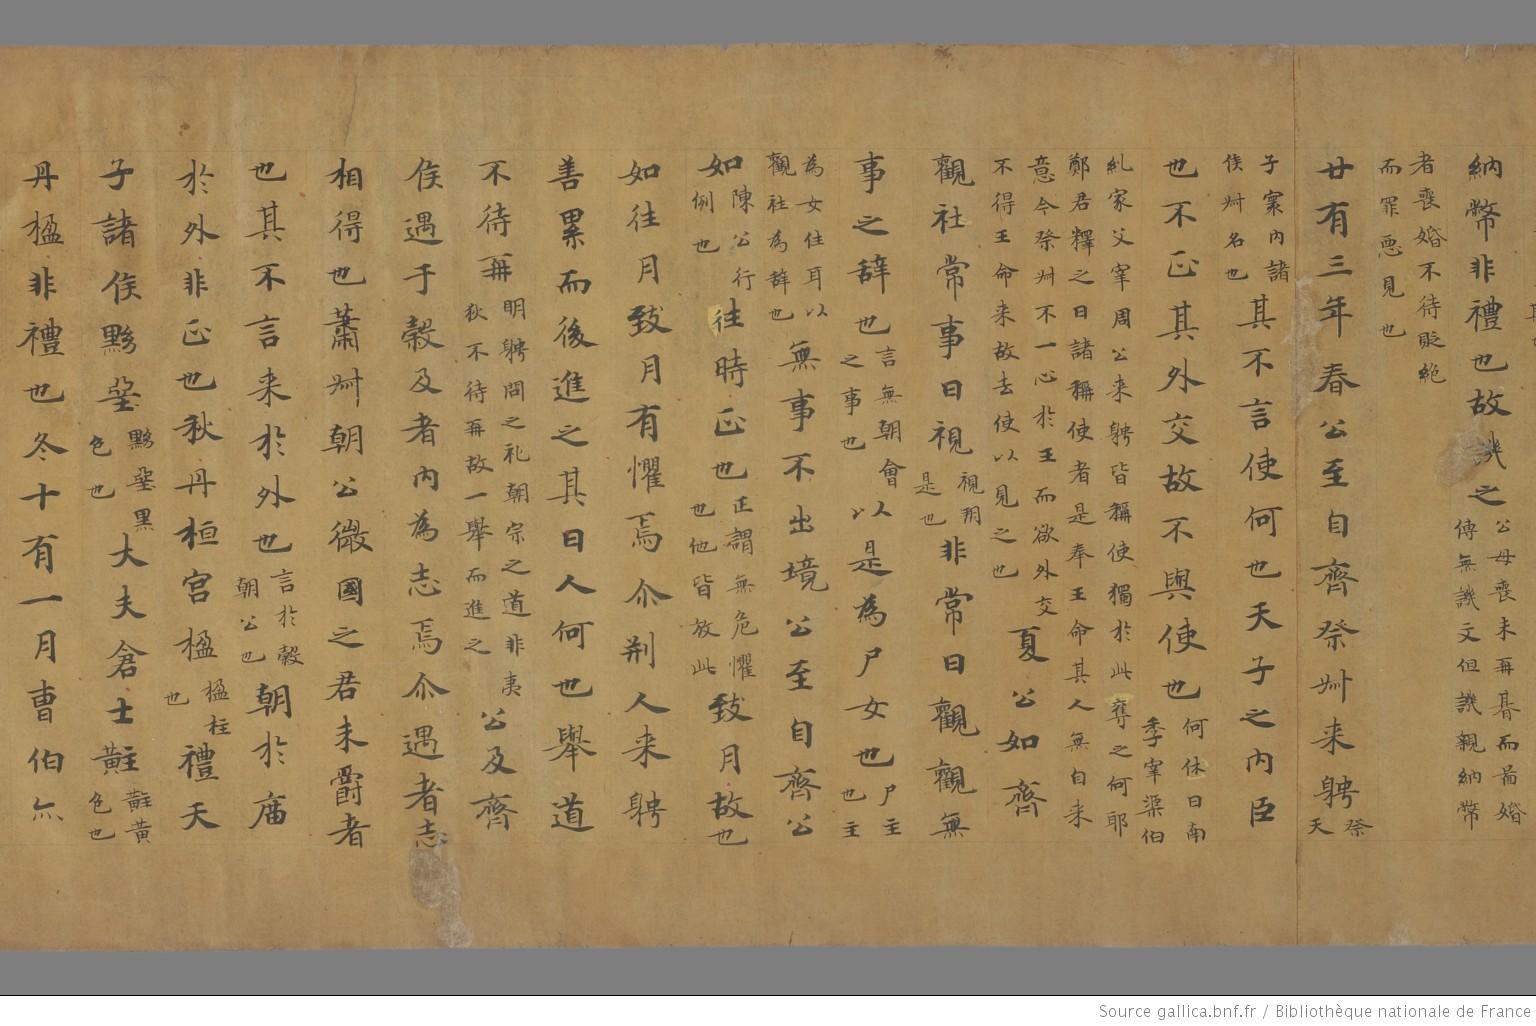 納幣非禮也故譏之公母喪未再朞而啚婚傳無譏文但譏親納幣
者喪婚不待貶絕而罪惡見也
廿有三年春公至自齊祭叔来聘祭天
子寰內諸侯叔名也其不言使何也天子之內臣
也不正其外交故不與使也何休曰南季宰渠伯
糺家父宰周公来聘皆稱使獨於此奪之何耶鄭君釋之曰諸稱使者是奉王命其人無自来
意今祭叔不一心於王而欲外交不得王命来故去使以見之也夏公如齊
觀社常事曰視視朔是也非常曰觀觀無
事之辞也言無朝會之事也以是為尸女也尸主也主
為女住耳以觀社為辞也無事不出境公至自齊公
如陳公行例也往時正也正謂無危懼也他皆放此致月故也
如往月致月有懼焉尒荆人来聘
善累而後進之其曰人何也舉道
不待再明聘問之礼朝宗之道非夷狄不待再故一舉而進之公及齊
侯遇于穀及者內為志焉尒遇者志
相得也蕭叔朝公微國之君未爵者
也其不言来於外也言於穀朝公也朝於庿
於外非正也秋丹桓宮楹楹柱也禮天
子諸侯黝堊黝堊黑色也大夫倉士黈黈黄色也
丹楹非禮也冬十有一月曺伯
Source gallica.bnf.fr / Bibliothèque nationale de France